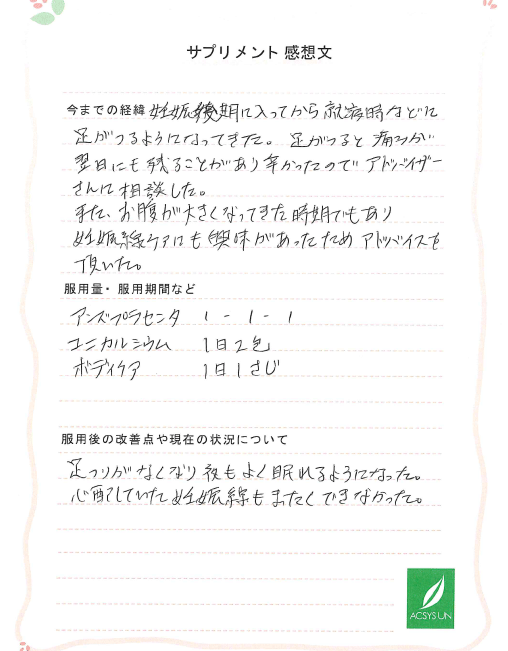 サプリメント 感想文
今までの経緯 妊娠後期に入ってから就寝時などに
足がつるようになってきた。足がつると痛みが
翌日にも残ることがあり辛かったのでアドバイザー
さんに相談した。
また、お腹が大きくなってきた時期でもあり
妊娠線ケアにも興味があったためアドバイスを
頂いた。
服用量・服用期間など
アンズプラセンタ 1 - 1 - 1
ユニカルシウム 1日2包
ボディケア 1日1さじ
服用後の改善点や現在の状況について
足つりがなくなり夜もよく眠れるようになった。
心配していた妊娠線もまったくできなかった。
ACSYSUN